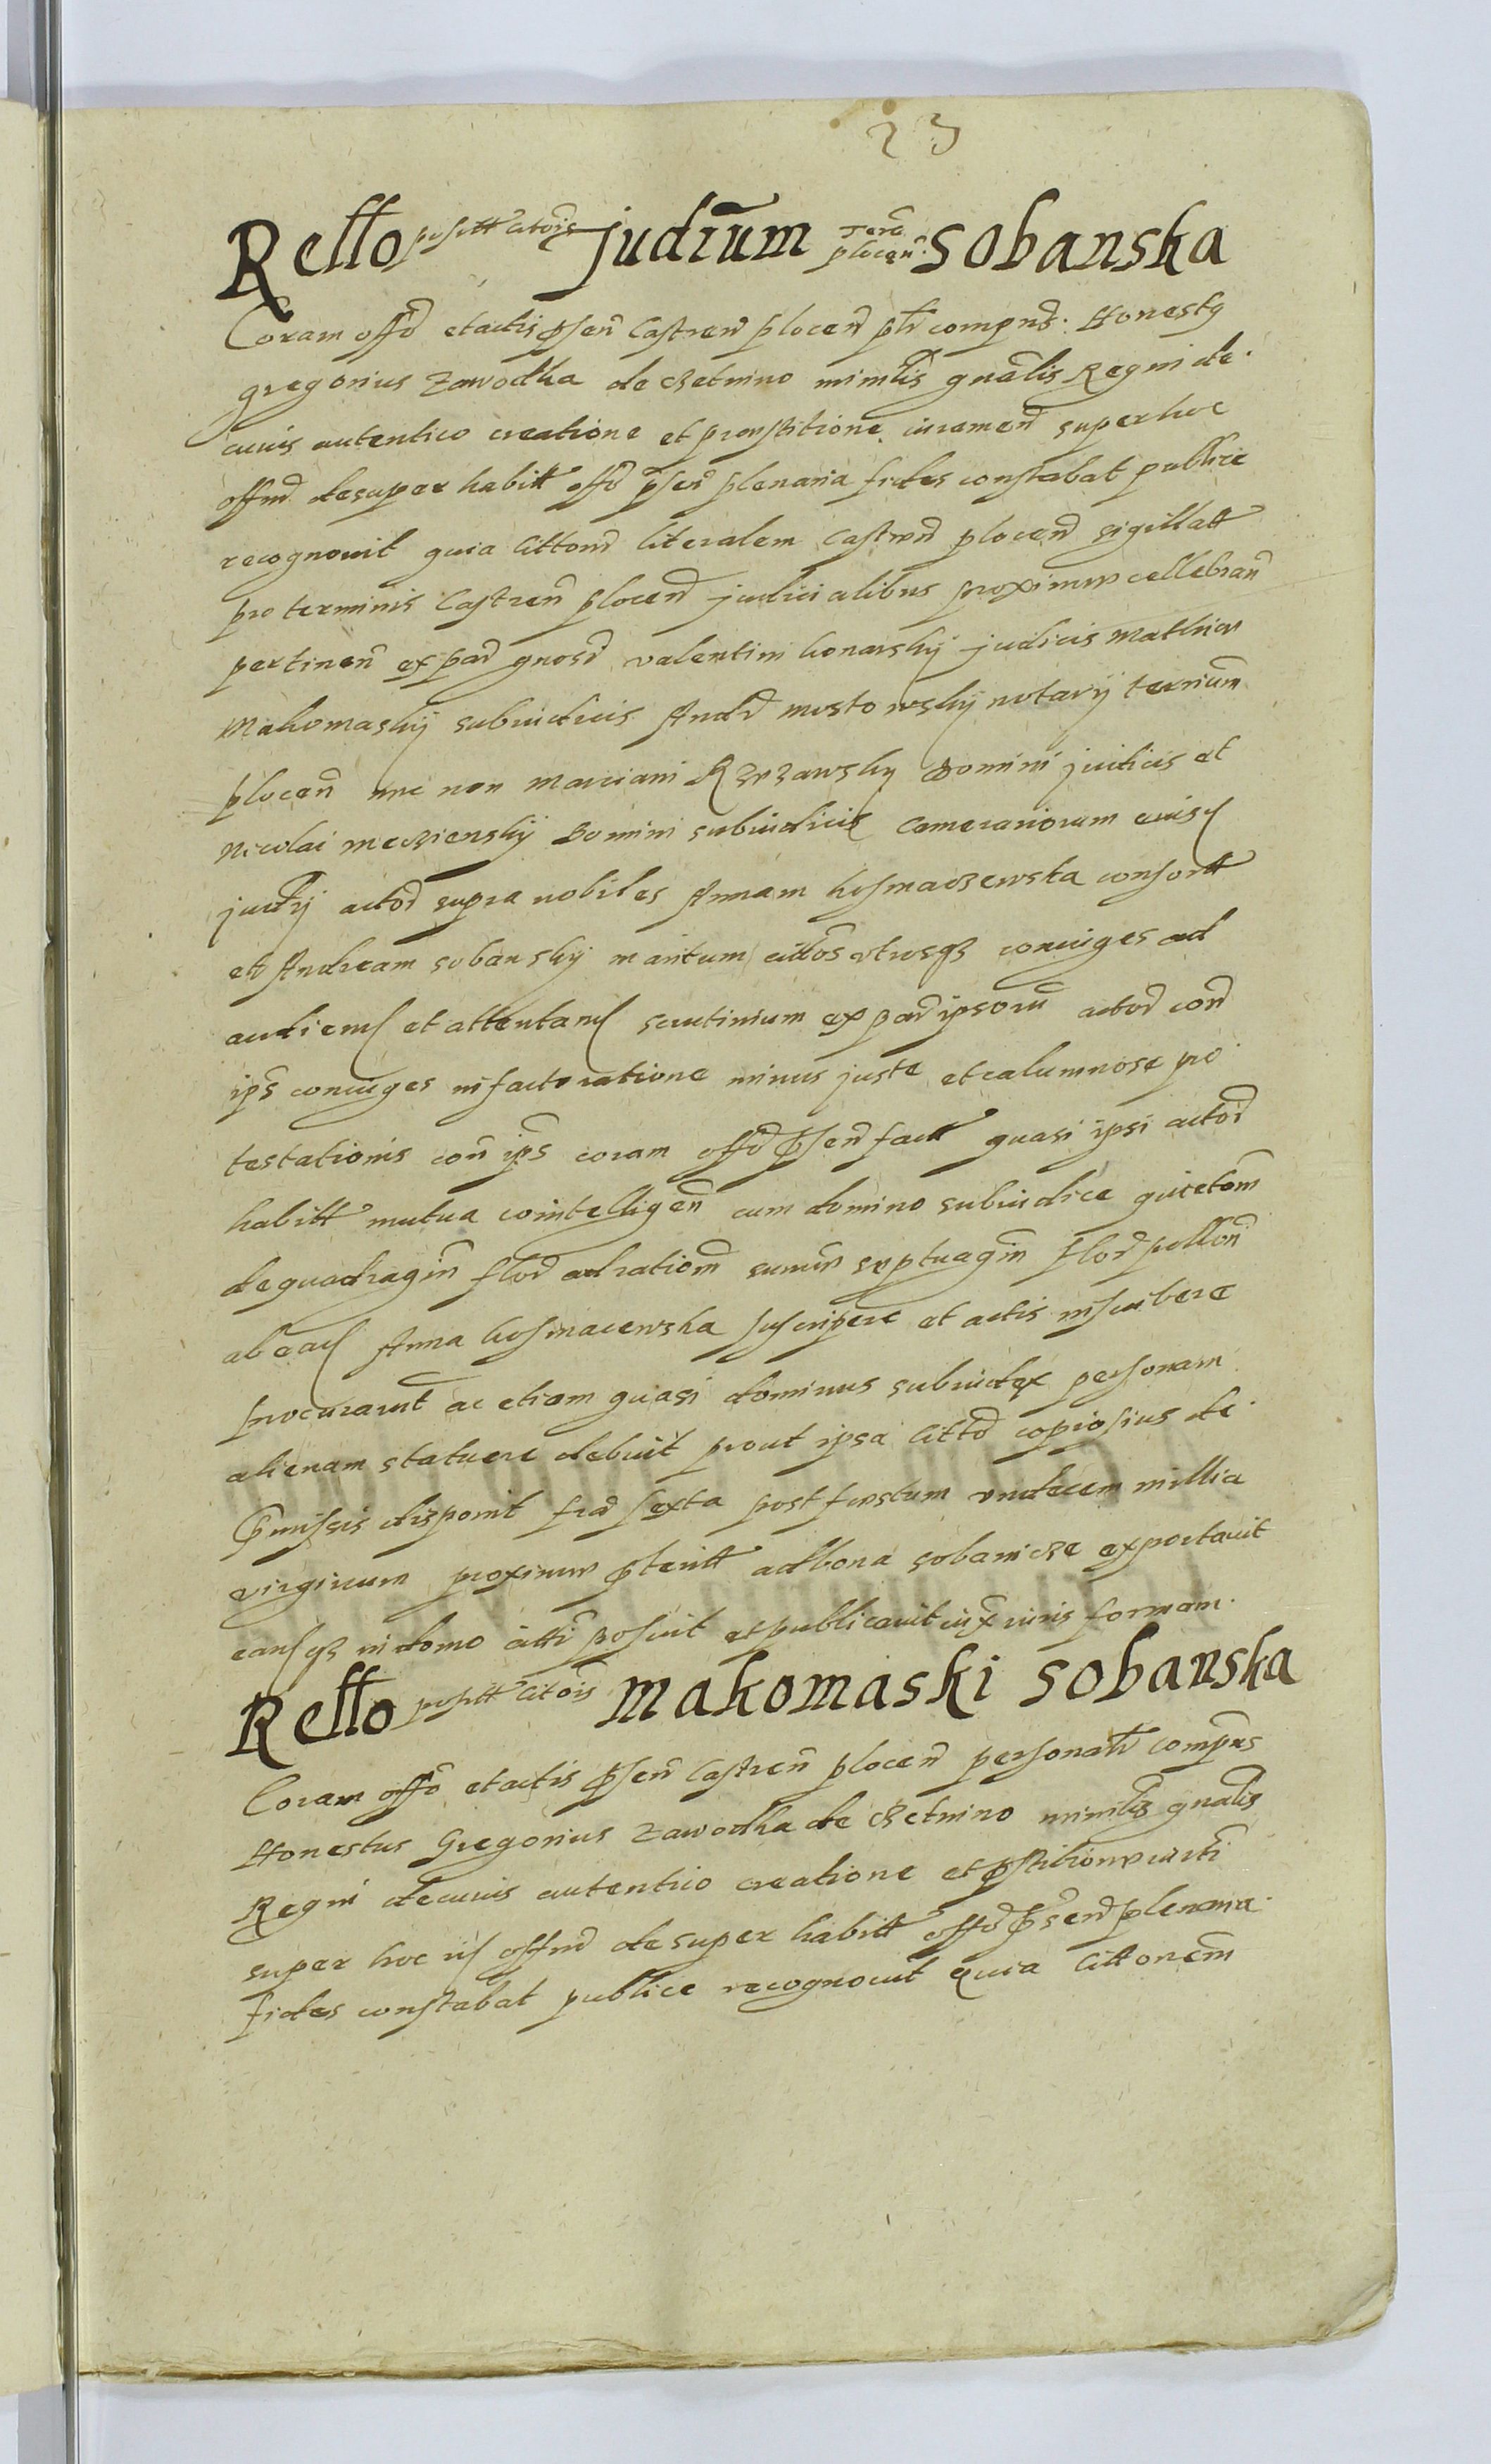 23
Rello positt citõis judicum Terrã plocen̄ sobanska
Coram offō et actis p̄sen̄ Castren̄ plocen̄ p̄lr compn̄s. Honestq
gregorius zawodka de czetnino minilis gnãlis Regni de
cuius autentico creatione et pronstitione iuramen̄ super hoc
offm̄ desuper habitt offō p̄sen̄ plenaria fides constabat publice
recognouit quia littom̄ literalem castren̄ plocen̄ sigillatt
pro terminis Castren̄ plocen̄ judicialibus proximus cellebran̄
pertinen̄ ex par̄ gnosr̄ valentini konarskij judicis Mathiæ
Makomaskij subiudicis Andr̄ mostowskij notarij terrium̄
plocen̄ nec non marciani Rzezawsky Domini judicis et
Nicolai meczienskij Domini subiudicis Camerariorum eius
judry actor̄ supra nobiles Annam kosmaczewska consortt
et Andream sobanskij maritum eidos vtrosqz coniuges ad
audien et attentan scrutinium ex par̄ ipsorū actor̄ con̄
ip̄s coniuges in facto ratione minus juste et calumnose pro
testationis con̄ ip̄s coram offō p̄sen̄ factt quasi ipsi actor̄
habitt mutua cointelligen̄ cum domino subiudice quietom̄
de quadragin̄ flor̄ ad rationm̄ sum̄ septuagin̄ flor̄ pollon̄
ab eac Anna kosmacewska suscipere et actis inscribere
procurarunt ac etiam quasi dominus subiudex personam
alienam statuere debuit prout ipsa litto copiosius de
p̄missis disponit fr̄a sexta post festum vndecem millia
virginum proximus p̄teritt ad bona sobanicze exportauit
eansqz in domo atti posuit et publicauit iux̄ iuris formam.
Rello positt citõis makomaski sobanska
Coram offō et actis p̄sen̄ Castren̄ plocen̄ personalr̄ compn̄s
Honestus Gregorius zawodka de czetnino minilis gnãlis
Regni de cuius autentico creatione et p̄stitione iurti
super hoc iis offm̄ desuper habitt offō p̄sen̄ plenaria
fides constabat publice recognouit quia littonem̄